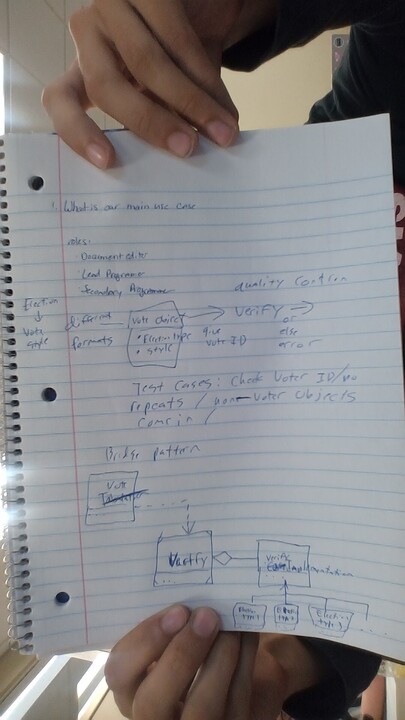 1. What is our main use case
roles:
Document editor
Lead Programmer
Secondary Programmer
quality Control
Election
Vote
style
different
formats
Vote Choice
• Election type
• style
give
Vote ID
verify
or
else
error
Test Cases: Check Voter ID/no
repeats / non-voter objects
Comsin /
Bridge pattern
Vote
Verify
verify
implementation
Election
type 3